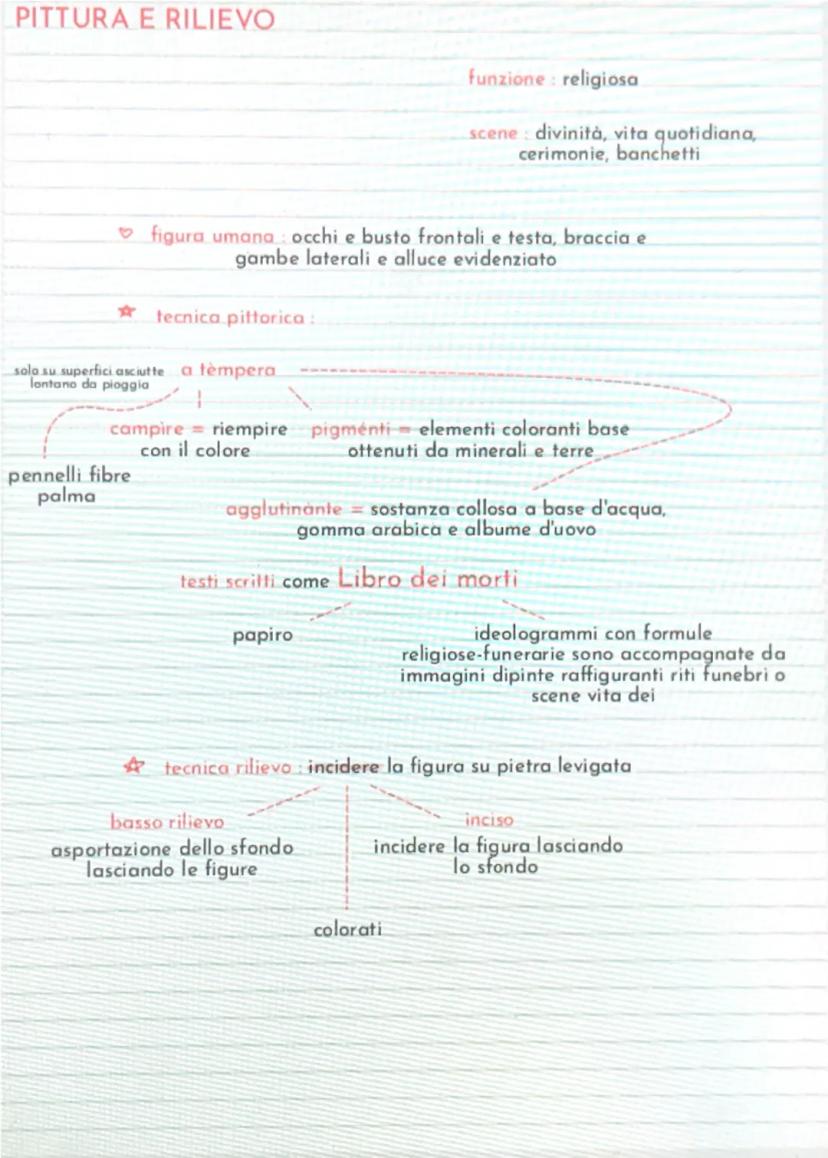 PITTURA E RILIEVO
funzione : religiosa
scene : divinità, vita quotidiana,
cerimonie, banchetti
figura umana : occhi e busto frontali e testa, braccia e
gambe laterali e alluce evidenziato
tecnica pittorica :
solo su superfici asciutte
lontano da pioggia
a tèmpera
campìre = riempire
con il colore
pigménti = elementi coloranti base
ottenuti da minerali e terre
pennelli fibre
palma
agglutinànte = sostanza collosa a base d'acqua,
gomma arabica e albume d'uovo
testi scritti come Libro dei morti
papiro
ideologrammi con formule
religiose-funerarie sono accompagnate da
immagini dipinte raffiguranti riti funebri o
scene vita dei
tecnica rilievo : incidere la figura su pietra levigata
basso rilievo
asportazione dello sfondo
lasciando le figure
inciso
incidere la figura lasciando
lo sfondo
colorati